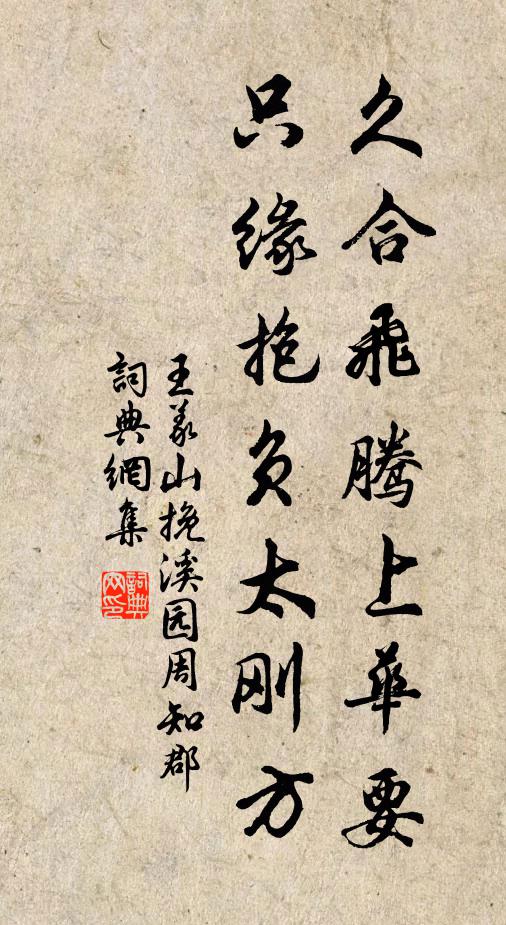 久合飛騰上華要
只緣抱负太刚方
王義山挽溪园周知郡
詞典網集
詞典網印